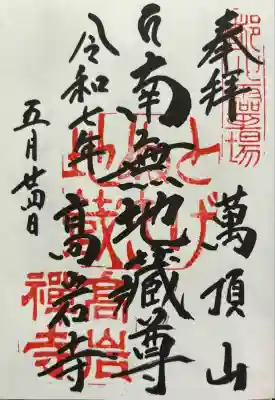 奉拝
萬頂山
南無地藏尊
令和七年
高岩寺
五月廿四日
とげ
ぬき
地蔵
高岩
禪寺